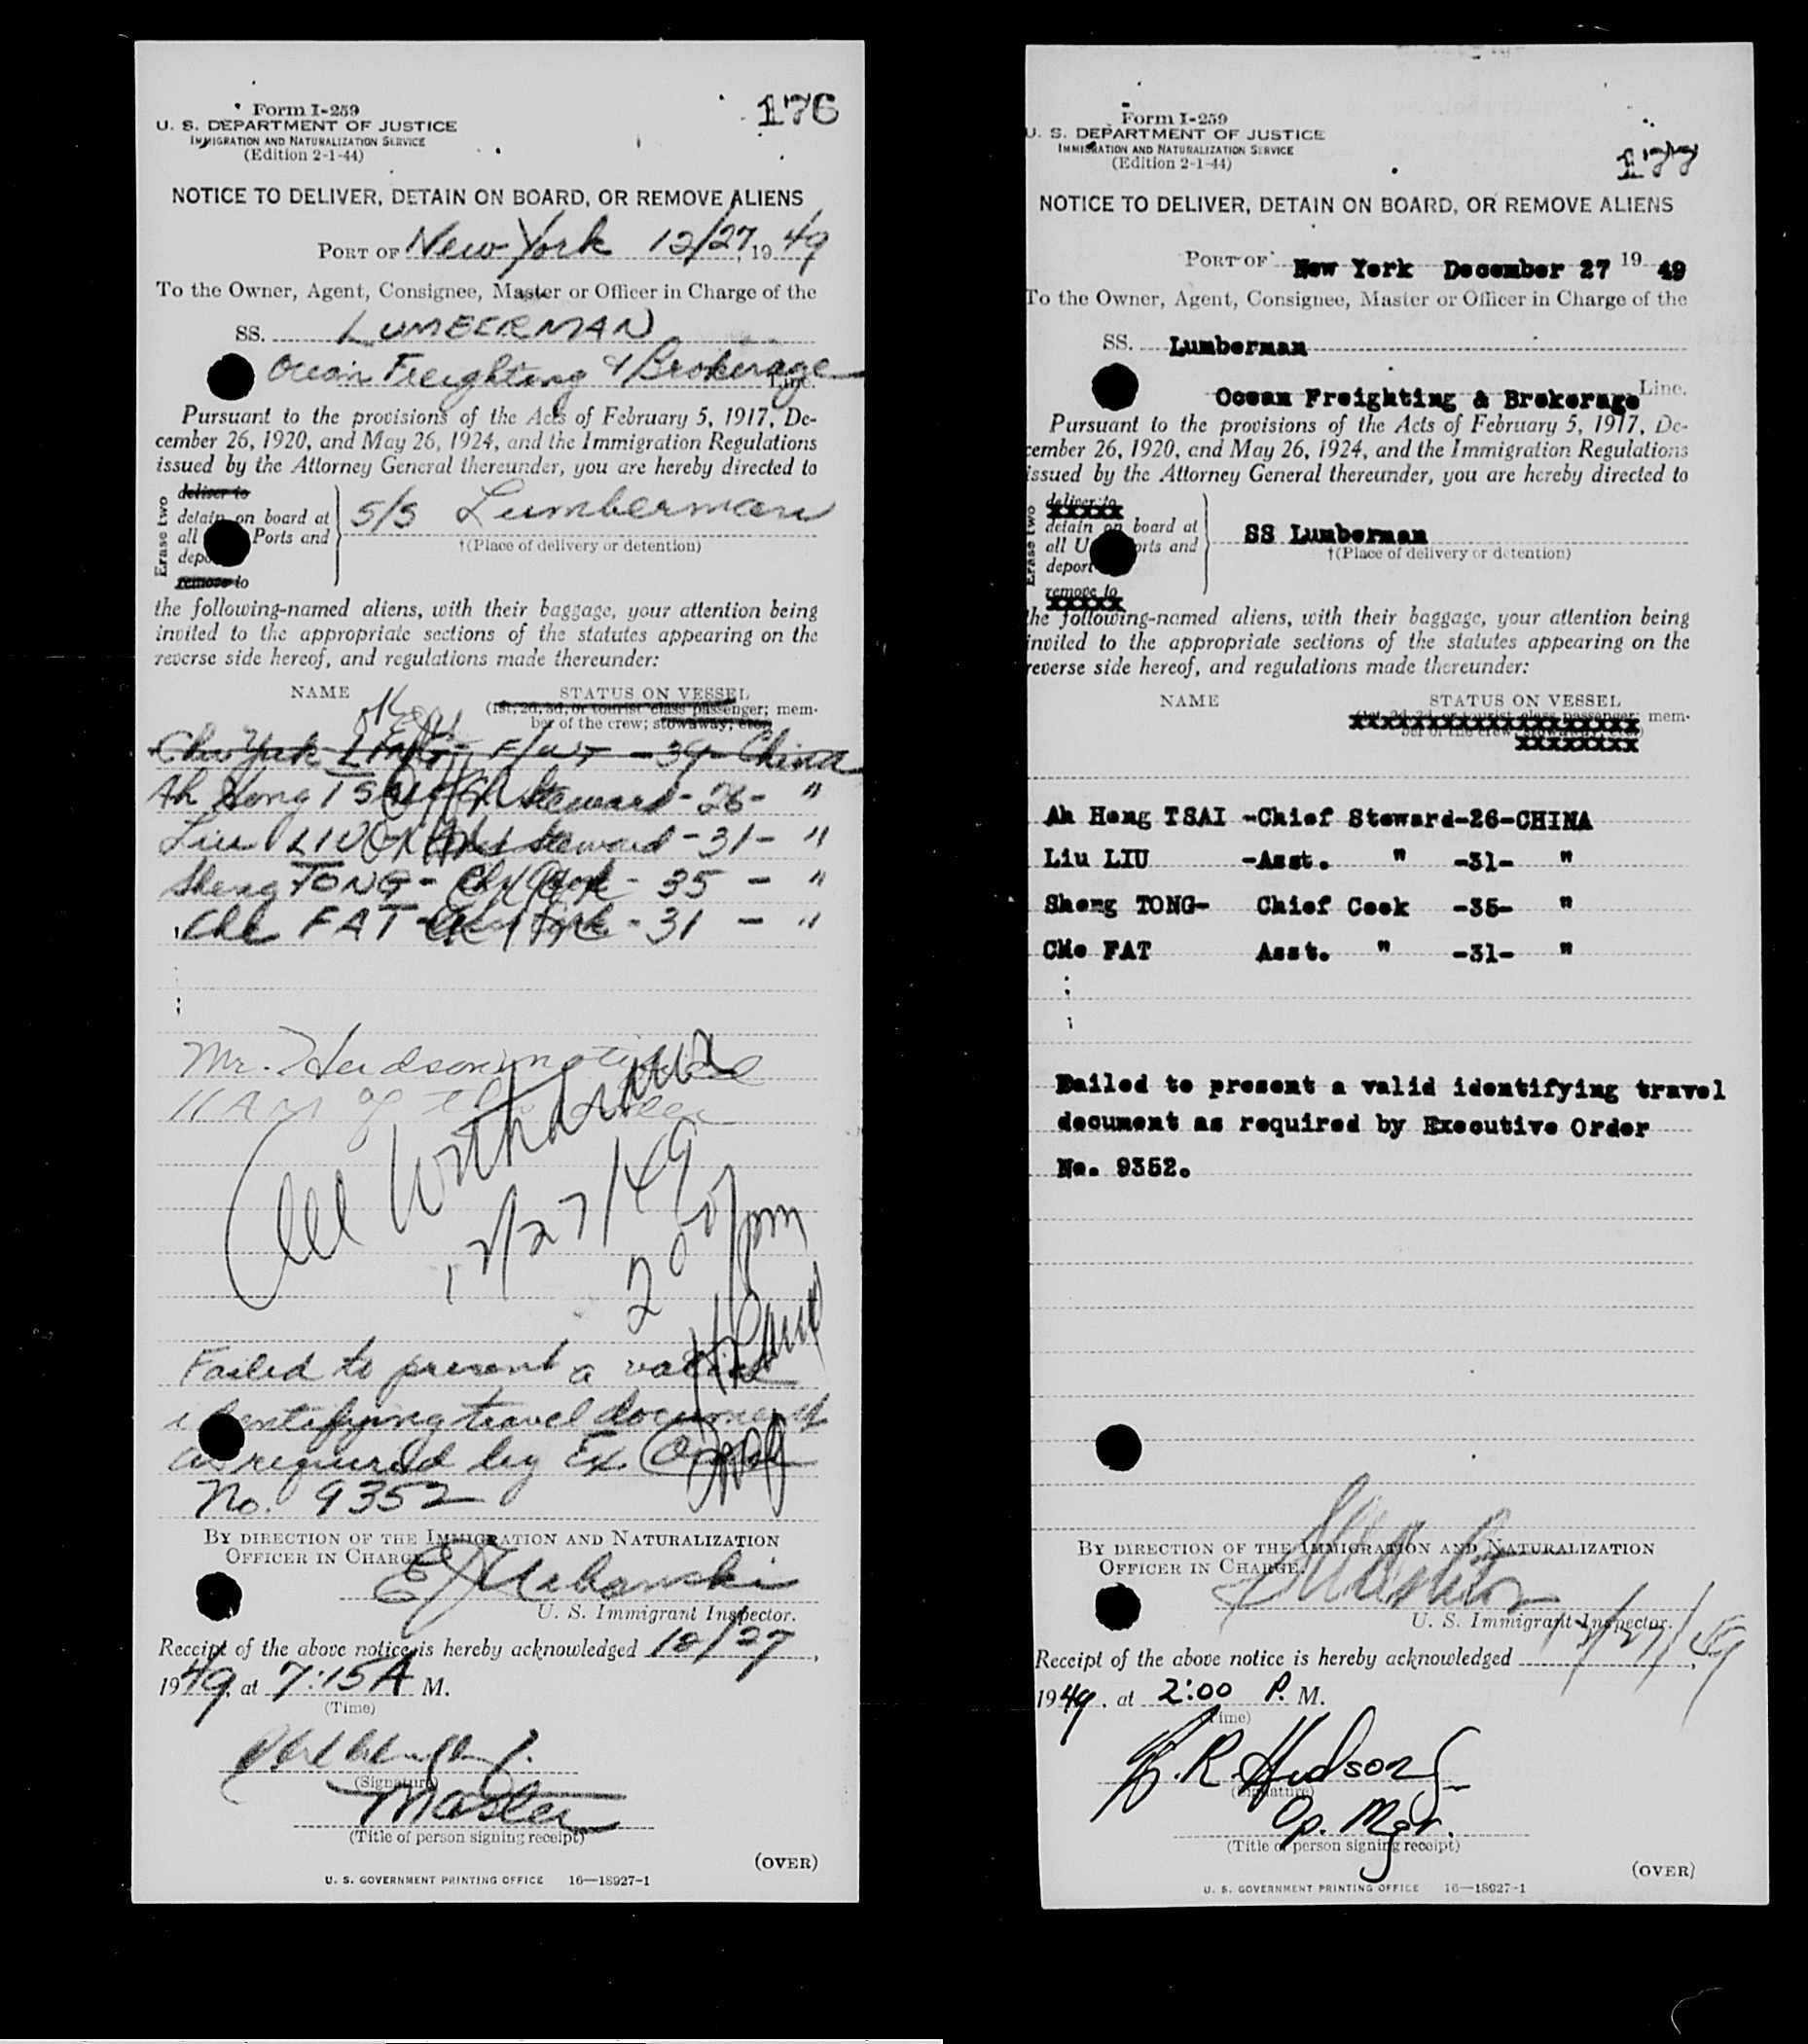 176
Form I-259
U. S. DEPARTMENT OF JUSTICE
IMMIGRATION AND NATURALIZATION SERVICE
(Edition 2-1-44)
NOTICE TO DELIVER, DETAIN ON BOARD, OR REMOVE ALIENS
PORT OF New York 12/27, 1949
To the Owner, Agent, Consignee, Master or Officer in Charge of the
SS. LUMBERMAN
Ocean Freighting & Brokerage Line.
Pursuant to the provisions of the Acts of February 5, 1917, De-
cember 26, 1920, and May 26, 1924, and the Immigration Regulations
issued by the Attorney General thereunder, you are hereby directed to
Erase two
deliver to
detain on board at
all Ports and
remove to
S/S Lumberman
†(Place of delivery or detention)
the following-named aliens, with their baggage, your attention being
invited to the appropriate sections of the statutes appearing on the
reverse side hereof, and regulations made thereunder:
NAME STATUS ON VESSEL
(1st, 2d, 3d, or tourist class passenger; mem-
ber of the crew; stowaway, etc.)
39 - China
Ah Hong TSAI Ch Steward - 26 - "
Liu LIU Asst Steward - 31 - "
Sheng TONG - Chf Cook - 35 - "
FAT - 31 - "
Mr. Hudson notified
11 AM of the
All Withdrawn
12/27/49
2 00 pm
Failed to present a valid
identifying travel document
as required by Ex Order
No. 9352
BY DIRECTION OF THE IMMIGRATION AND NATURALIZATION
OFFICER IN CHARGE.
U. S. Immigrant Inspector.
Receipt of the above notice is hereby acknowledged 12/27,
1949, at 7:15 A M.
(Time)
(Signature)
Master
(Title of person signing receipt)
(OVER)
U. S. GOVERNMENT PRINTING OFFICE 16—18927-1
177
Form I-259
U. S. DEPARTMENT OF JUSTICE
IMMIGRATION AND NATURALIZATION SERVICE
(Edition 2-1-44)
NOTICE TO DELIVER, DETAIN ON BOARD, OR REMOVE ALIENS
PORT OF New York December 27 19 49
To the Owner, Agent, Consignee, Master or Officer in Charge of the
SS. Lumberman
Ocean Freighting & Brokerage Line.
Pursuant to the provisions of the Acts of February 5, 1917, De-
cember 26, 1920, and May 26, 1924, and the Immigration Regulations
issued by the Attorney General thereunder, you are hereby directed to
Erase two
deliver to
detain on board at
all U ports and
deport
remove to
SS Lumberman
†(Place of delivery or detention)
the following-named aliens, with their baggage, your attention being
invited to the appropriate sections of the statutes appearing on the
reverse side hereof, and regulations made thereunder:
NAME STATUS ON VESSEL
(1st, 2d, 3d, or tourist class passenger; mem-
ber of the crew
Ah Hong TSAI -Chief Steward-26-CHINA
Liu LIU -Asst. " -31- "
Sheng TONG- Chief Cook -35- "
CMo FAT Asst. " -31- "
Failed to present a valid identifying travel
document as required by Executive Order
No. 9352.
BY DIRECTION OF THE IMMIGRATION AND NATURALIZATION
OFFICER IN CHARGE.
U. S. Immigrant Inspector.
Receipt of the above notice is hereby acknowledged 12/27/49,
1949, at 2:00 P. M.
(Time)
R. Hudson
(Signature)
Op. Mgr.
(Title of person signing receipt)
(OVER)
U. S. GOVERNMENT PRINTING OFFICE 16—18927-1